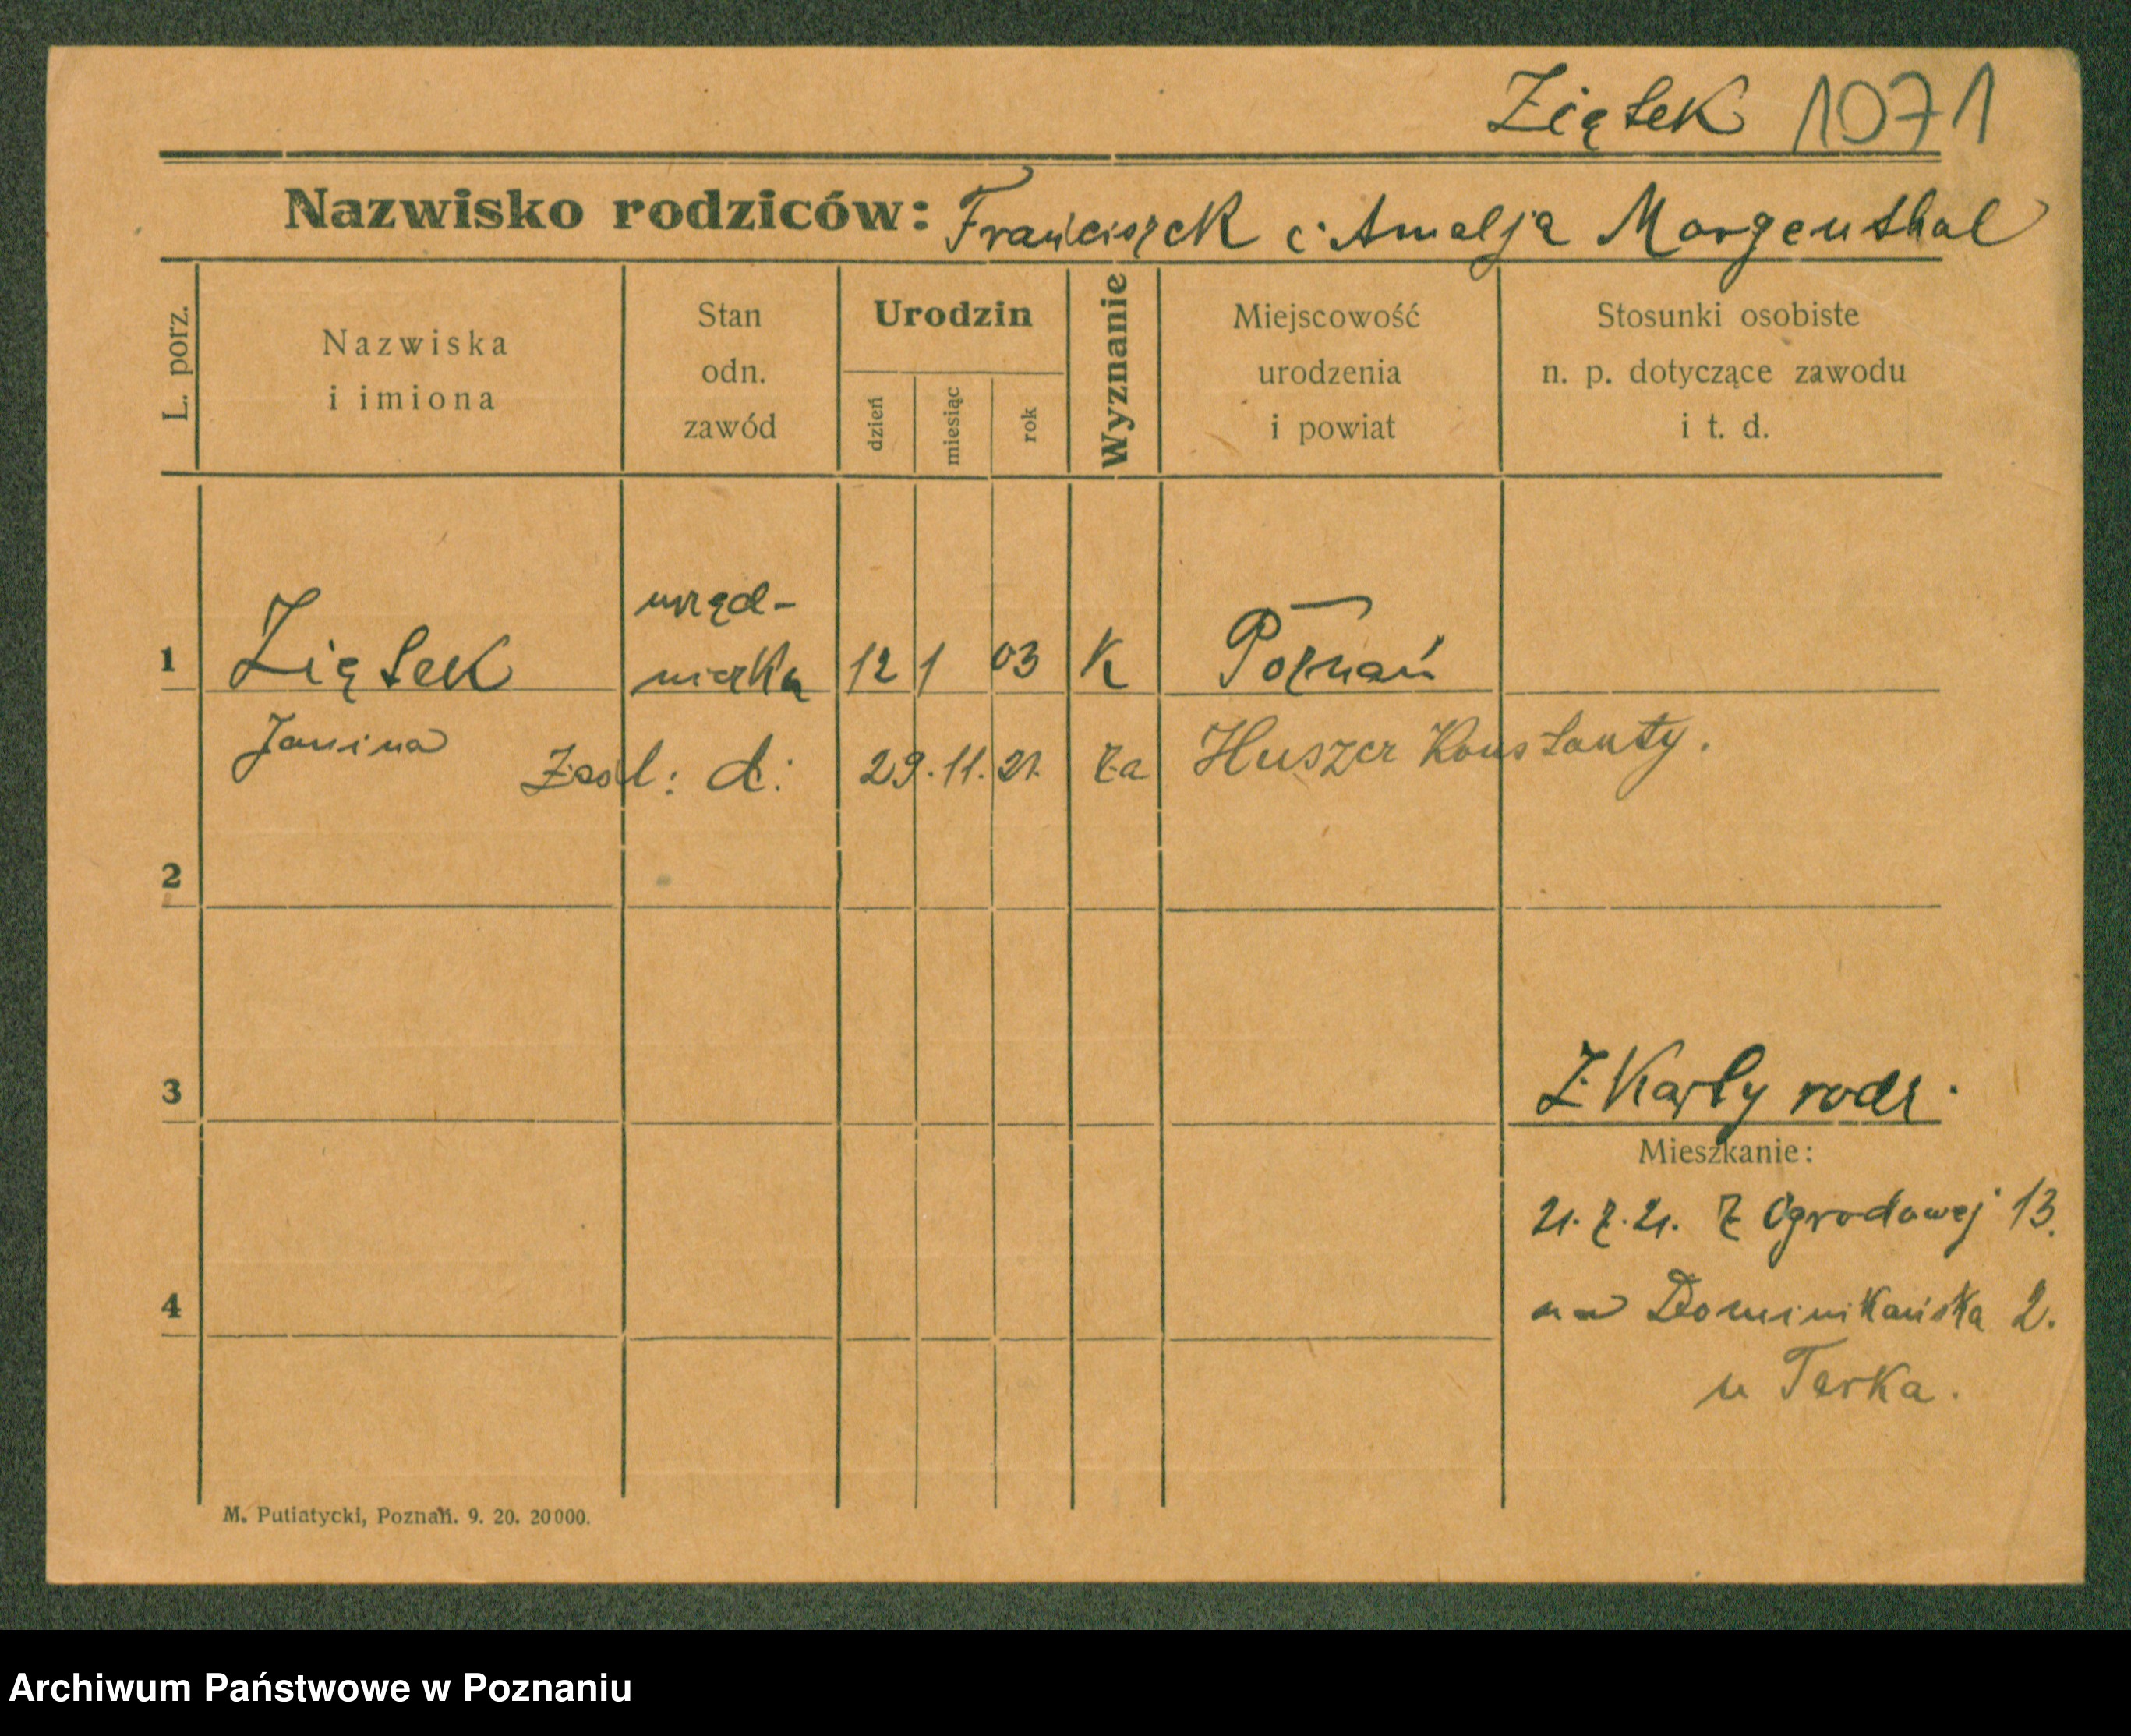 Ziętek 1071
Nazwisko rodziców: Franciszek i Amalja Morgenthal
L. porz.
Nazwiska
i imiona
Stan
odn.
zawód
Urodzin
dzień
miesiąc
rok
Wyznanie
Miejscowość
urodzenia
i powiat
Stosunki osobiste
n. p. dotyczące zawodu
i t. d.
urzęd-
1 Ziętek niczka 12 1 03 K Poznań
Janina
Zaśl: d: 29. 11. 21. za Huszcz Konstanty.
2
3
Z Karty rodz.
Mieszkanie:
21. 7. 21. Z Ogrodowej 13.
4
na Dominikańska 2.
u Terka.
M. Putiatycki, Poznań. 9. 20. 20000.
Archiwum Państwowe w Poznaniu